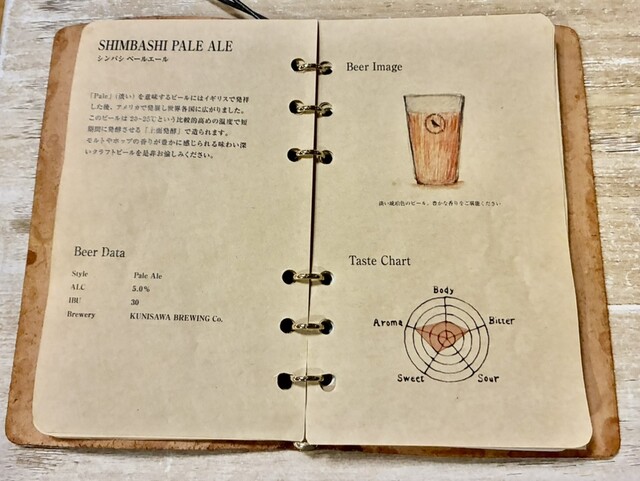 SHIMBASHI PALE ALE
シンバシ ペールエール
「Pale」(淡い)を意味するビールにはイギリスで発祥
した後、アメリカで発展し世界各国に広がりました。
このビールは20~25℃という比較的高めの温度で短
期間に発酵させる「上面発酵」で造られます。
モルトやホップの香りが豊かに感じられる味わい深
いクラフトビールを是非お愉しみください。
Beer Data
Style Pale Ale
ALC 5.0%
IBU 30
Brewery KUNISAWA BREWING Co.
Beer Image
淡い琥珀色のビール。豊かな香りをご堪能ください
Taste Chart
Body
Aroma
Bitter
Sweet
Sour